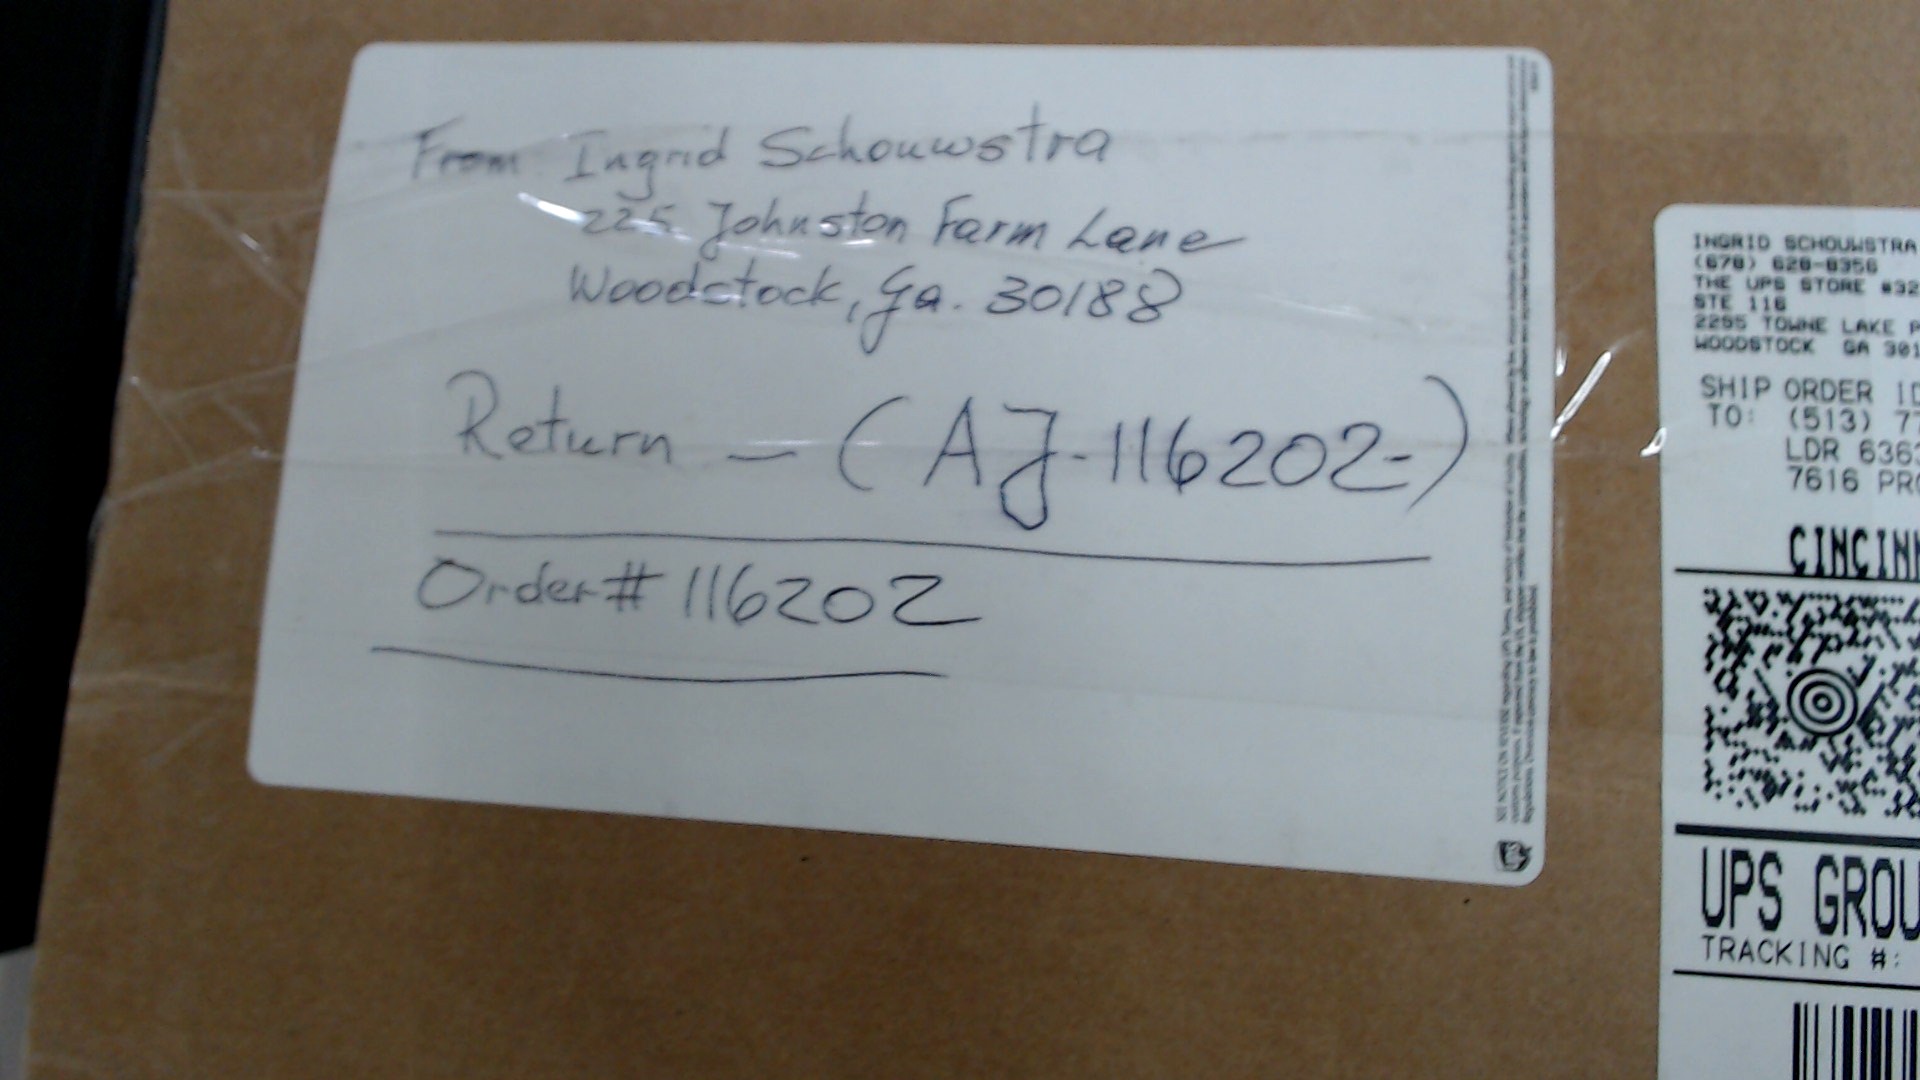 From Ingrid Schouwstra
225 Johnston Farm Lane
Woodstock, Ga. 30188
Return - (AJ-116202-)
Order# 116202
INGRID SCHOUWSTRA
(678) 628-8356
THE UPS STORE #32
STE 116
2295 TOWNE LAKE P
WOODSTOCK GA 301
SHIP ORDER ID
TO: (513) 77
LDR 6363
7616 PRO
CINCINN
UPS GROU
TRACKING #: